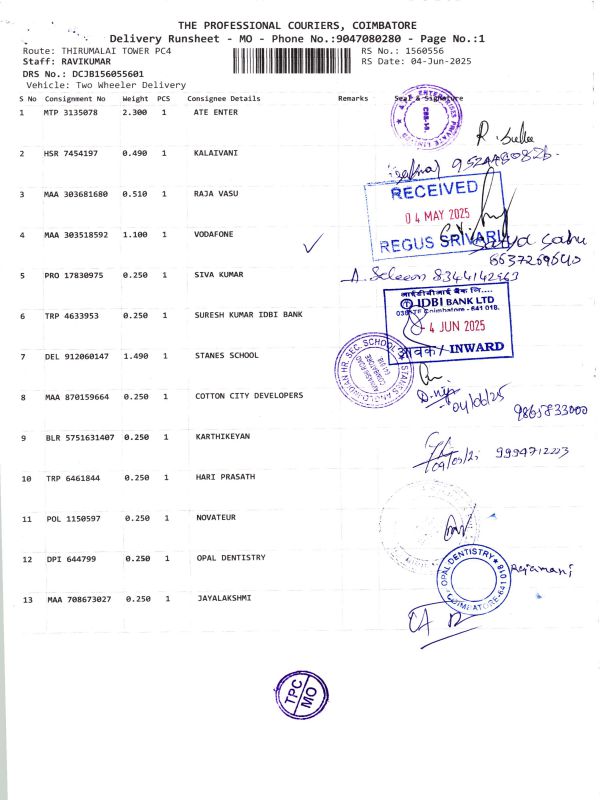 THE PROFESSIONAL COURIERS, COIMBATORE
Delivery Runsheet - MO - Phone No.:9047080280 - Page No.:1
Route: THIRUMALAI TOWER PC4 RS No.: 1560556
Staff: RAVIKUMAR RS Date: 04-Jun-2025
DRS No.: DCJB156055601
Vehicle: Two Wheeler Delivery
S No Consignment No Weight PCS Consignee Details Remarks Seal & Signature
1 MTP 3135078 2.300 1 ATE ENTER
2 HSR 7454197 0.490 1 KALAIVANI
3 MAA 303681680 0.510 1 RAJA VASU
RECEIVED
04 MAY 2025
REGUS SRIVARI
4 MAA 303518592 1.100 1 VODAFONE
5 PRO 17830975 0.250 1 SIVA KUMAR
6 TRP 4633953 0.250 1 SURESH KUMAR IDBI BANK
आईडीबीआई बैंक लि....
IDBI BANK LTD
Coimbatore - 641 018.
4 JUN 2025
आवक / INWARD
7 DEL 912060147 1.490 1 STANES SCHOOL
8 MAA 870159664 0.250 1 COTTON CITY DEVELOPERS
04/06/25
9865833000
9 BLR 5751631407 0.250 1 KARTHIKEYAN
9994712203
10 TRP 6461844 0.250 1 HARI PRASATH
11 POL 1150597 0.250 1 NOVATEUR
12 DPI 644799 0.250 1 OPAL DENTISTRY
OPAL DENTISTRY
COIMBATORE-641 018
Rajamani
13 MAA 708673027 0.250 1 JAYALAKSHMI
TPC
MO